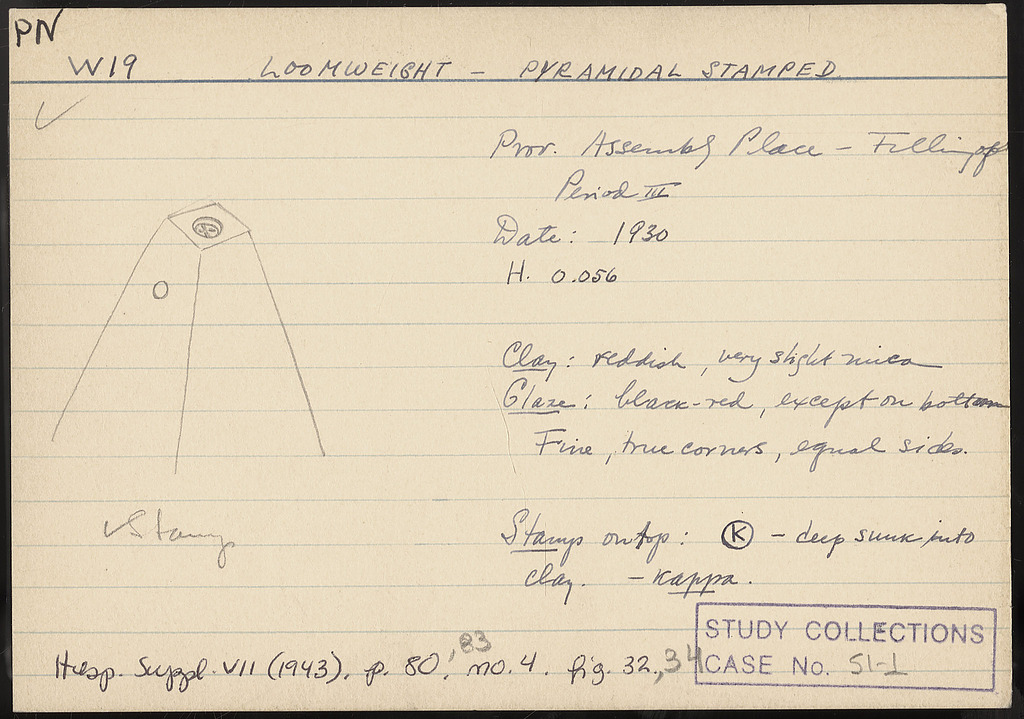 PN
W19 LOOMWEIGHT - PYRAMIDAL STAMPED
Prov. Assembly Place - Filling of
Period III
Date: 1930
H. 0.056
Clay: reddish, very slight mica
Glaze: black-red, except on bottom
Fine, true corners, equal sides.
Stamp
Stamp on top: K - deep sunk into
clay. - kappa.
Hesp. Suppl. VII (1943), p. 80, 83 no. 4. fig. 32, 34
STUDY COLLECTIONS
CASE No. 51-1